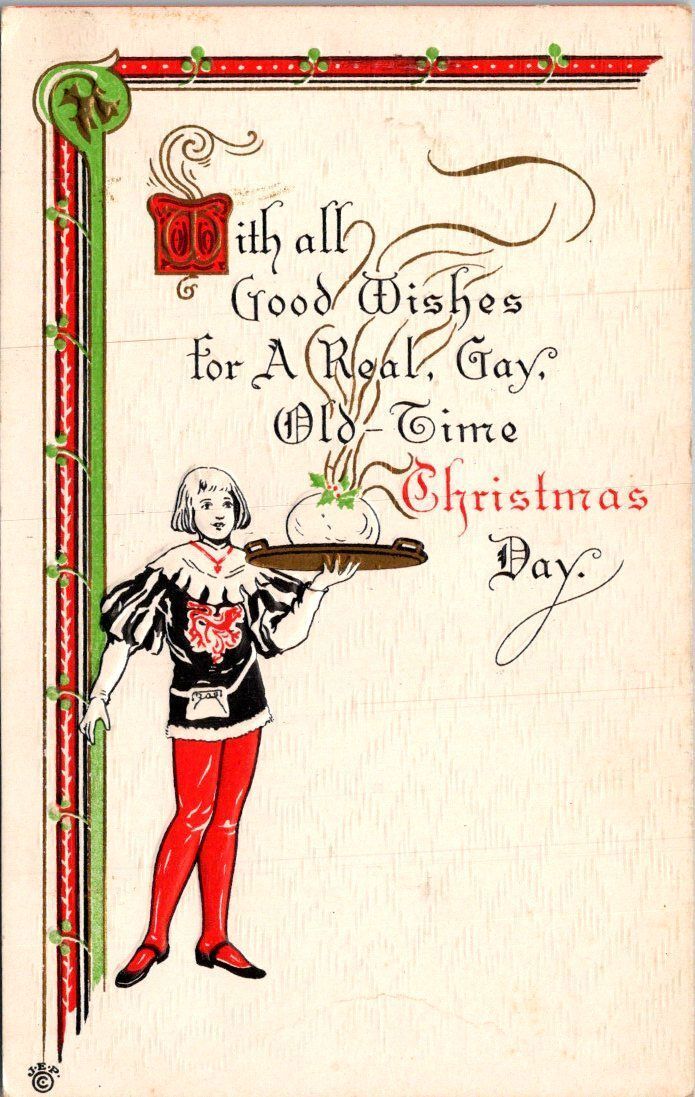 With all
Good Wishes
for A Real, Gay,
Old-Time
Christmas
Day.
J.E.P.
©